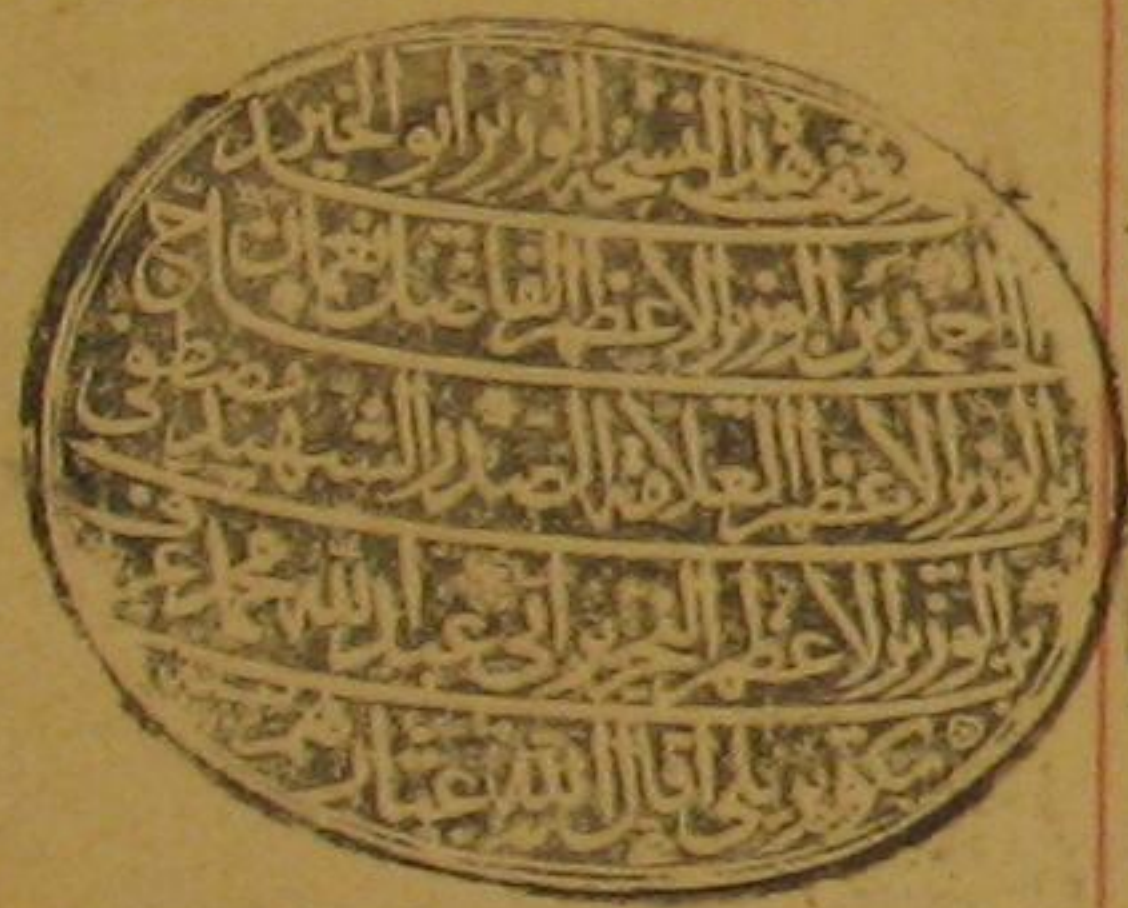 وقف هذه النسخة الوزير ابو الخير
احمد بن الوزير الاعظم الفاضل نعمان
بن الوزير الاعظم العلامة الصدر الشهيد مصطفى
بن الوزير الاعظم النحرير ابي عبد الله محمد عرف
بكوپريلي اقال الله عثارهم